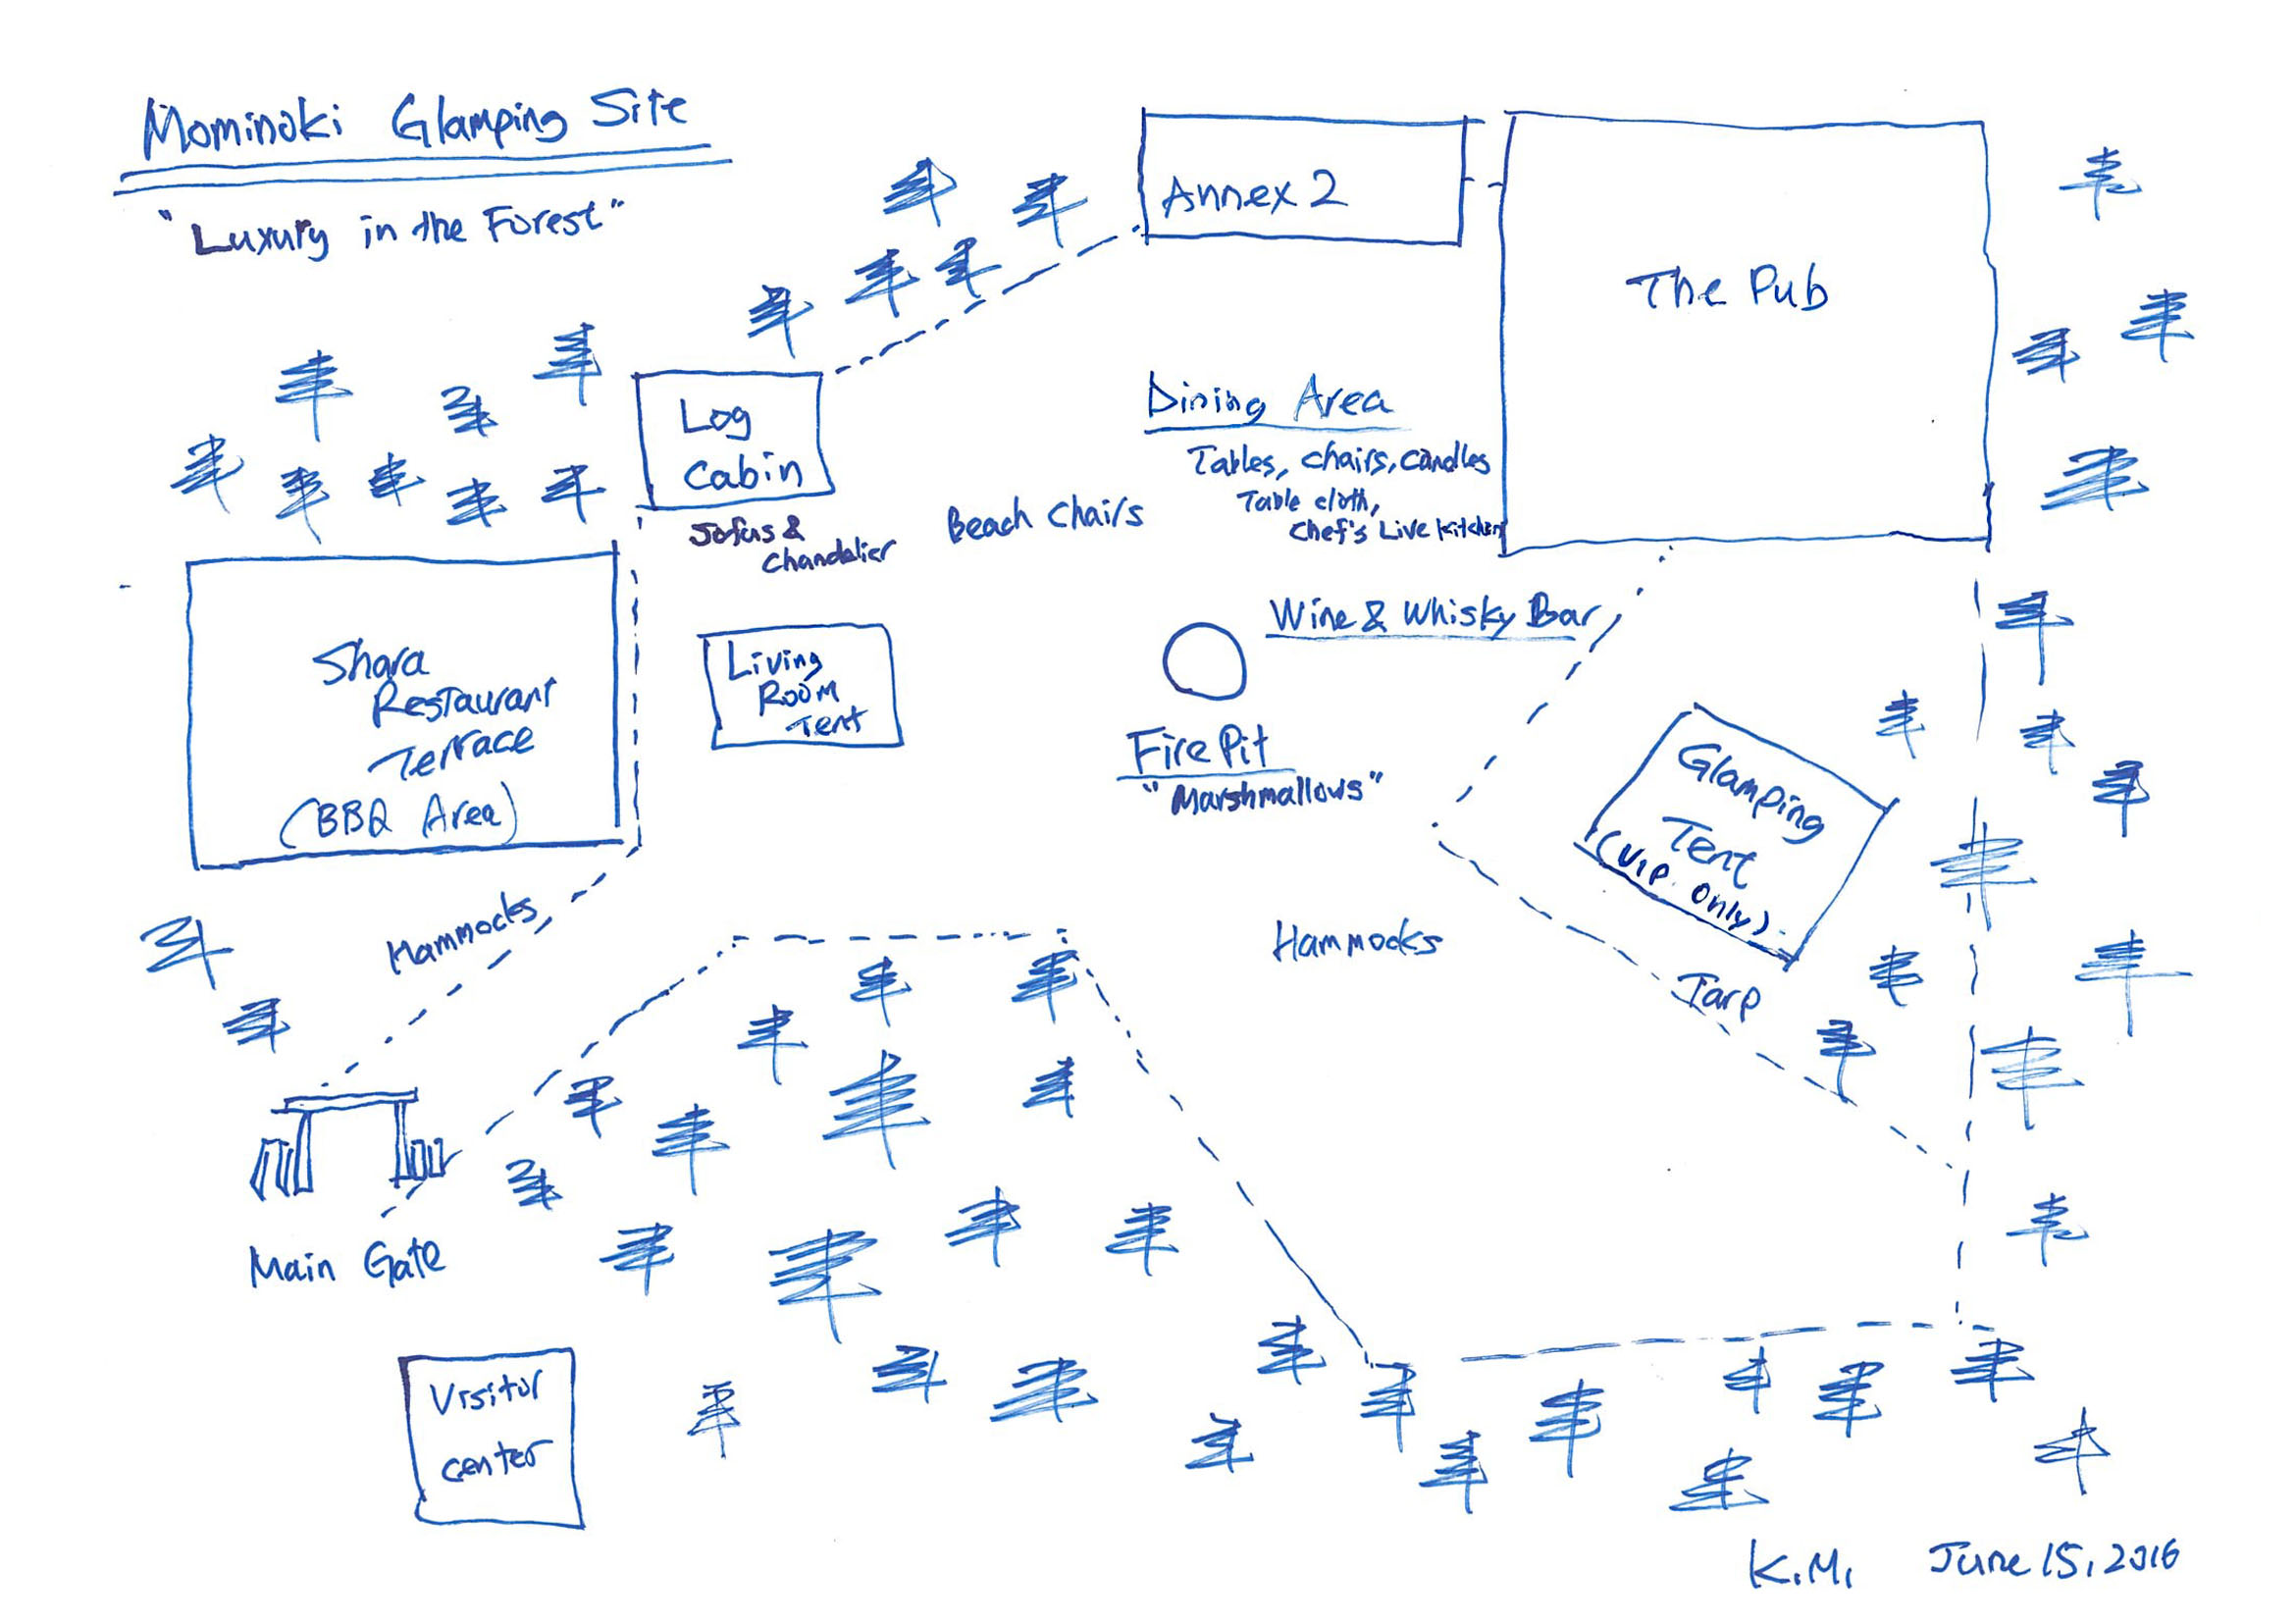 Mominoki Glamping Site
"Luxury in the Forest"
Annex 2
The Pub
Log
Cabin
Sofas &
Chandelier
Beach Chairs
Dining Area
Tables, Chairs, Candles
Table cloth,
Chef's Live Kitchen
Shara
Restaurant
Terrace
(BBQ Area)
Living
Room
Tent
Wine & Whisky Bar
Fire Pit
"Marshmallows"
Glamping
Tent
(VIP only)
Hammocks
Hammocks
Tarp
Main Gate
Visitor
Center
K.M. June 15, 2016